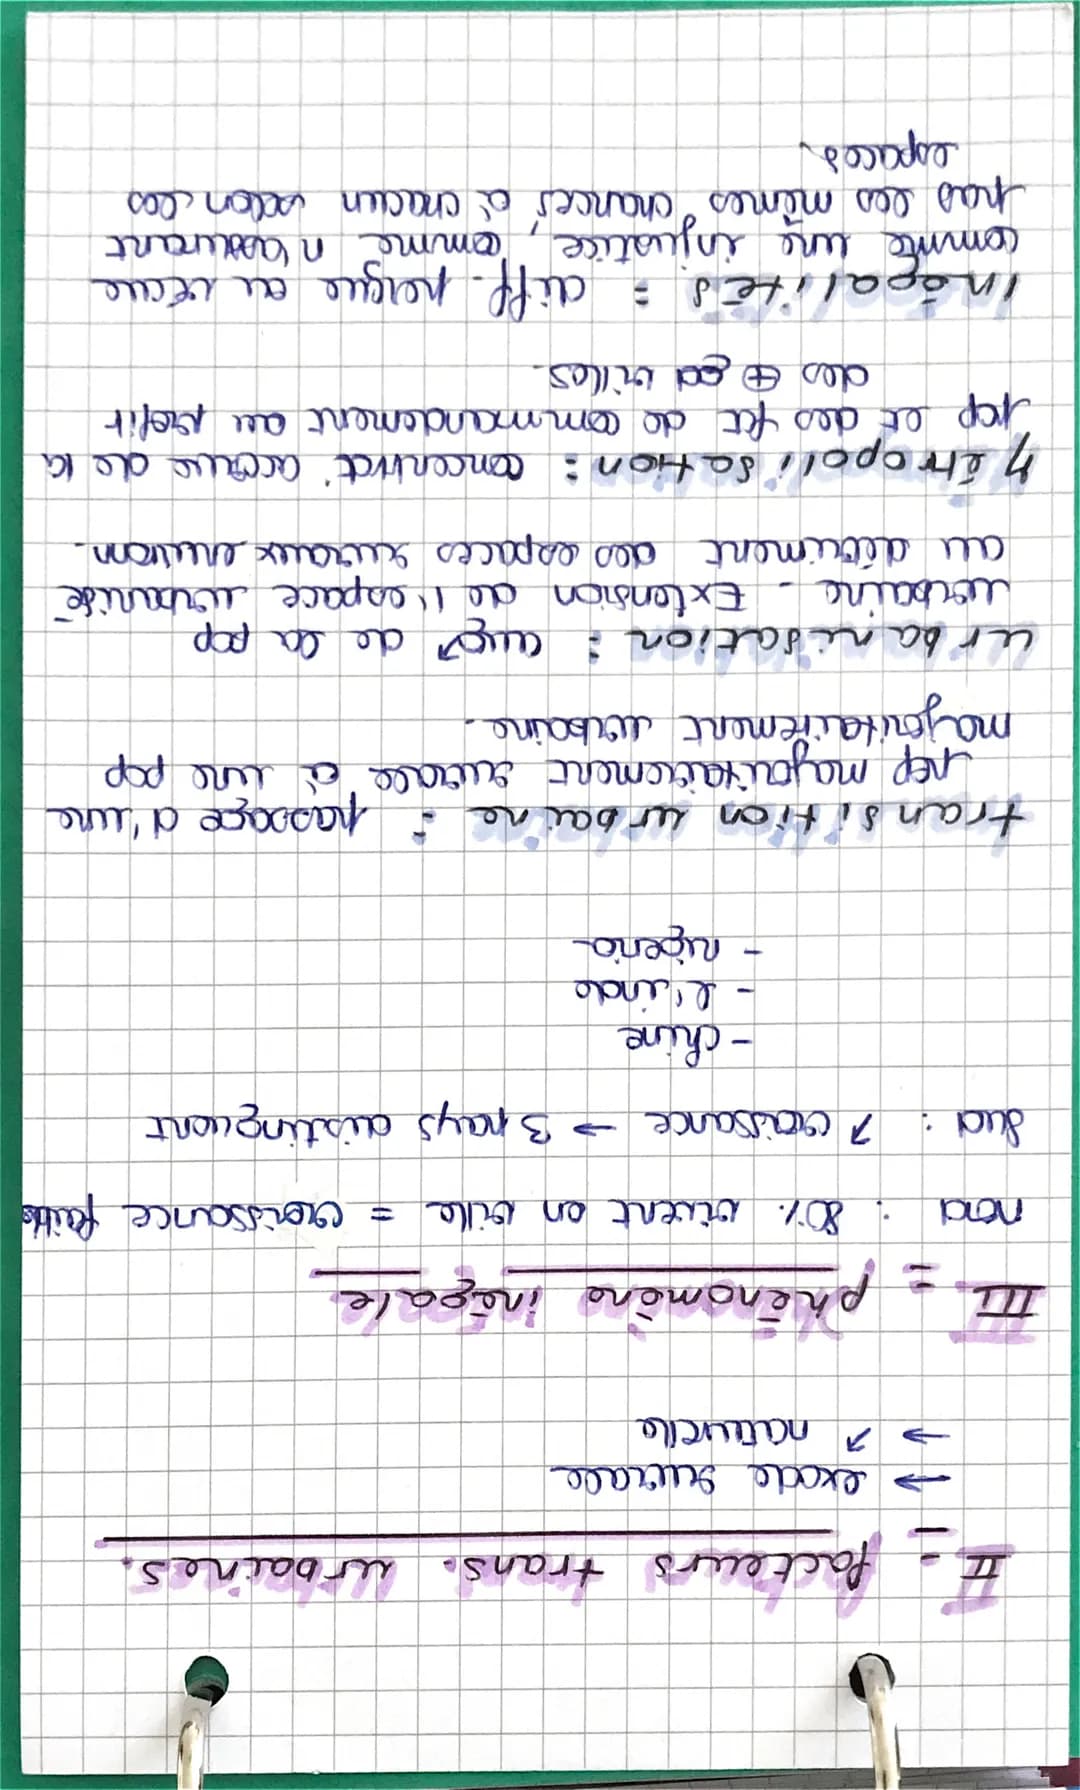 II - facteurs trans. urbaines.
→ exode rurale
→ ↗ naturelle
III - phénomène inégale
nord : 80% vivent en ville = croissance faible
Sud : ↗ croissance → 3 pays distinguent
- chine
- l'inde
- nigeria
transition urbaine : passage d'une
pop majoritairement rurale à une pop
majoritairement urbaine.
urbanisation : aug↗ de la pop
urbaine. Extension de l'espace urbanisé
au détriment des espaces ruraux environn.
Métropolisation : concentrat° accrue de la
pop et des fct de commandement au profit
des ⊕ gd villes.
Inégalités : diff. perçue ou vécue
comme une injustice, comme n'assurant
pas les mêmes chances à chacun selon les
espaces.